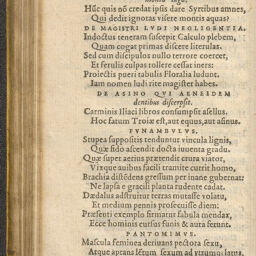 Hũc quis nõ credat ipsis dare Syrtibus amnes,
Qui dedit ignotas visere montis aquas?
DE MAGISTRI LVDI NEGLIGENTIA.
Indoctus teneram suscepit Calculo plebem,
Quam cogat primas discere literulas.
Sed cum discipulos nullo terrore coercet,
Et ferulis culpas tollere cessat iners:
Proiectis pueri tabulis Floralia ludunt.
Iam nomen ludi rite magister habet.
DE ASINO QVI AENEIDEM
dentibus discerpsit.
Carminis Iliaci libros consumpsit asellus.
Hoc fatum Troiæ est, aut equus, aut asinus.
FVNAMBVLVS.
Stupea suppositis tenduntur vincula lignis,
Quæ fido ascendit docta iuuenta gradu.
Quæ super aerius prætendit crura viator,
Vixque auibus facili tramite currit homo,
Brachia distẽdens gressum per inane gubernat:
Ne lapsa e gracili planta rudente cadat.
Dædalus adstruitur terras mutasse volatu,
Et medium pennis prosecuisse diem:
Præsenti exemplo firmatur fabula mendax,
Ecce hominis cursus funis & aura ferunt.
PANTOMIMVS.
Mascula femineo deriuans pectora sexu,
Atque aptans letum sexum ad vtrumq; latus